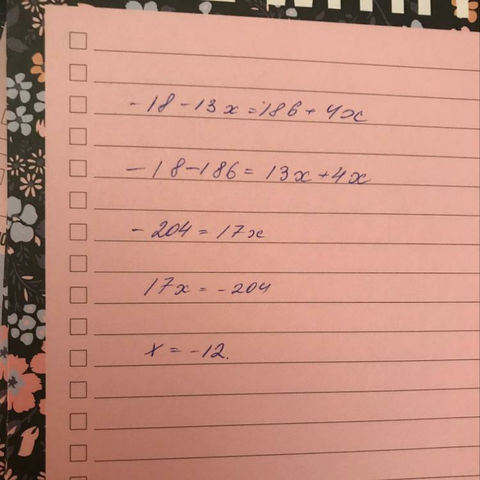 -18-13x=186+4x
-18-186=13x+4x
-204=17x
17x=-204
x=-12.